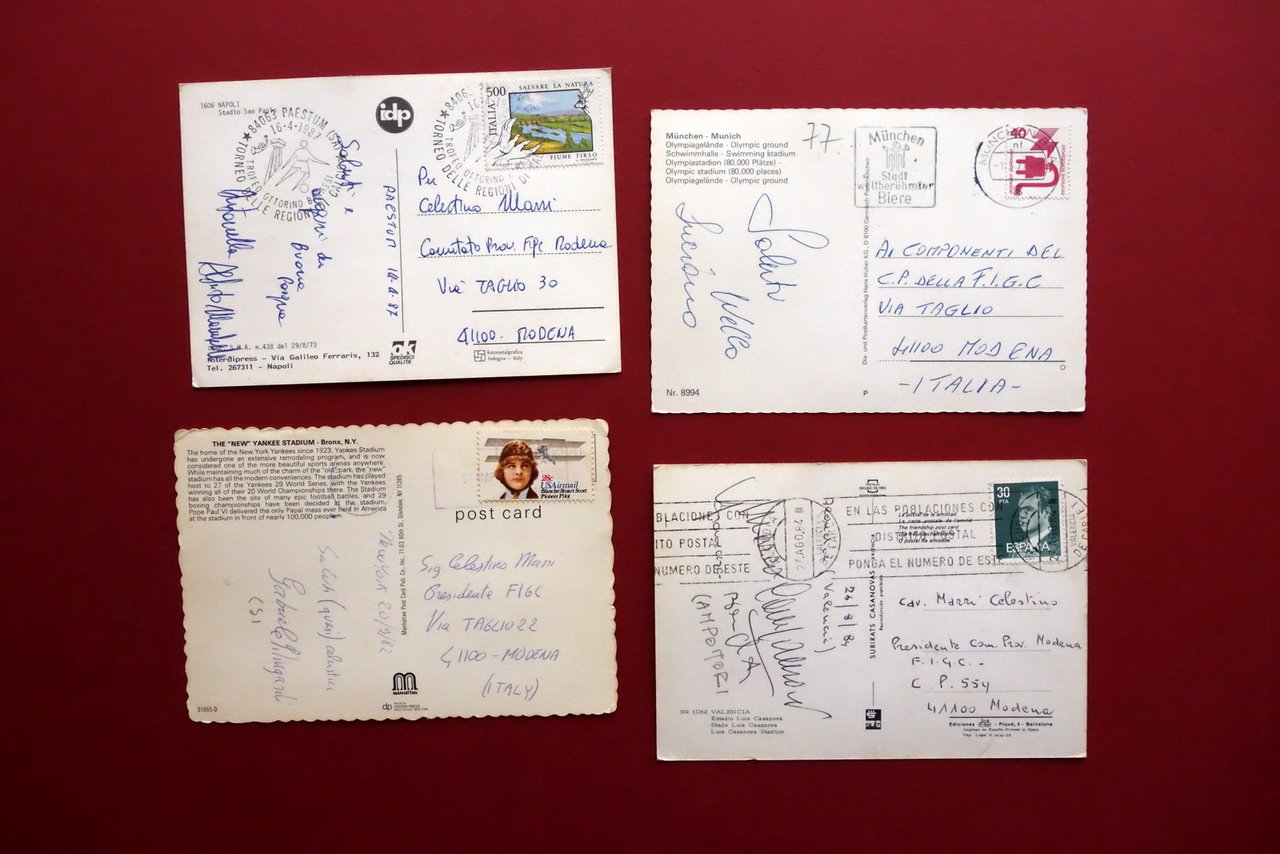 1606 NAPOLI
Stadio San Paolo
84063 PAESTUM (SA)
16-4-1987
TROFEO OTTORINO
TORNEO DELLE REGIONI
idp
500
ITALIA
SALVARE LA NATURA
FIUME TIRSO
Saluti e
auguri di
Buona
Pasqua
Antonella
PAESTUM 16-4-87
Per
Celestino Marri
Comitato Prov. Figc Modena
Via TAGLIO 30
41100 - MODENA
S.M.A. n.438 del 29/8/73
Interdipress - Via Galileo Ferraris, 132
Tel. 267311 - Napoli
ok
SPEDISCI
QUALITA'
fotometalgrafica
bologna - italy
München - Munich
Olympiagelände - Olympic ground
Schwimmhalle - Swimming stadium
Olympiastadion (80.000 Plätze) -
Olympic stadium (80.000 places)
Olympiagelände - Olympic ground
77
München
Stadt
weltberühmter
Biere
MÜNCHEN
40
Saluti
Luciano Wello
Dia- und Postkartenverlag Hans Huber KG, D-8100 Garmisch-Partenkirchen
AI COMPONENTI DEL
C.P. DELLA F.I.G.C
VIA TAGLIO
41100 MODENA
- ITALIA -
Nr. 8994
P
THE "NEW" YANKEE STADIUM - Bronx, N.Y.
The home of the New York Yankees since 1923, Yankee Stadium
has undergone an extensive remodeling program, and is now
considered one of the more beautiful sports arenas anywhere.
While maintaining much of the charm of the "old" park, the "new"
stadium has all the modern conveniences. The stadium has played
host to 27 of the Yankees 29 World Series, with the Yankees
winning all of their 20 World Championships there. The Stadium
has also been the site of many epic football battles, and 29
boxing championships have been decided at the stadium.
Pope Paul VI delivered the only Papal mass ever held in America
at the stadium in front of nearly 100,000 people.
28c
USAirmail
Blanche Stuart Scott
Pioneer Pilot
post card
Manhattan Post Card Pub. Co., Inc. 71-03 80th St., Glendale, NY 11385
20/9/82
Saluti (quasi) calcistici
(SI)
Sig Celestino Marri
Presidente FIGC
Via TAGLIO 22
41100 - MODENA
(ITALY)
MANHATTAN
dp
31865-D
BLACIONES CON
ITO POSTAL
NUMERO DE ESTE
27.AGO.84
EN LAS POBLACIONES CON
DISTRITO POSTAL
PONGA EL NUMERO DE ESTE
La postal de la amistad
La carte postale de l'amitié
The friendship post card
30
PTA
ESPAÑA
VALENCIA
26/8/84
Valencia)
(AMPOMORI
SUBIRATS CASANOVAS VALENCIA
Cav. Marri Celestino
Presidente Com. Prov. Modena
F.I.G.C. -
C.P. 554
41100 Modena
Nº 1062 VALENCIA
Estadio Luis Casanova
Stade Luis Casanova
Luis Casanova Stadium
Ediciones - Piqué, 4 - Barcelona